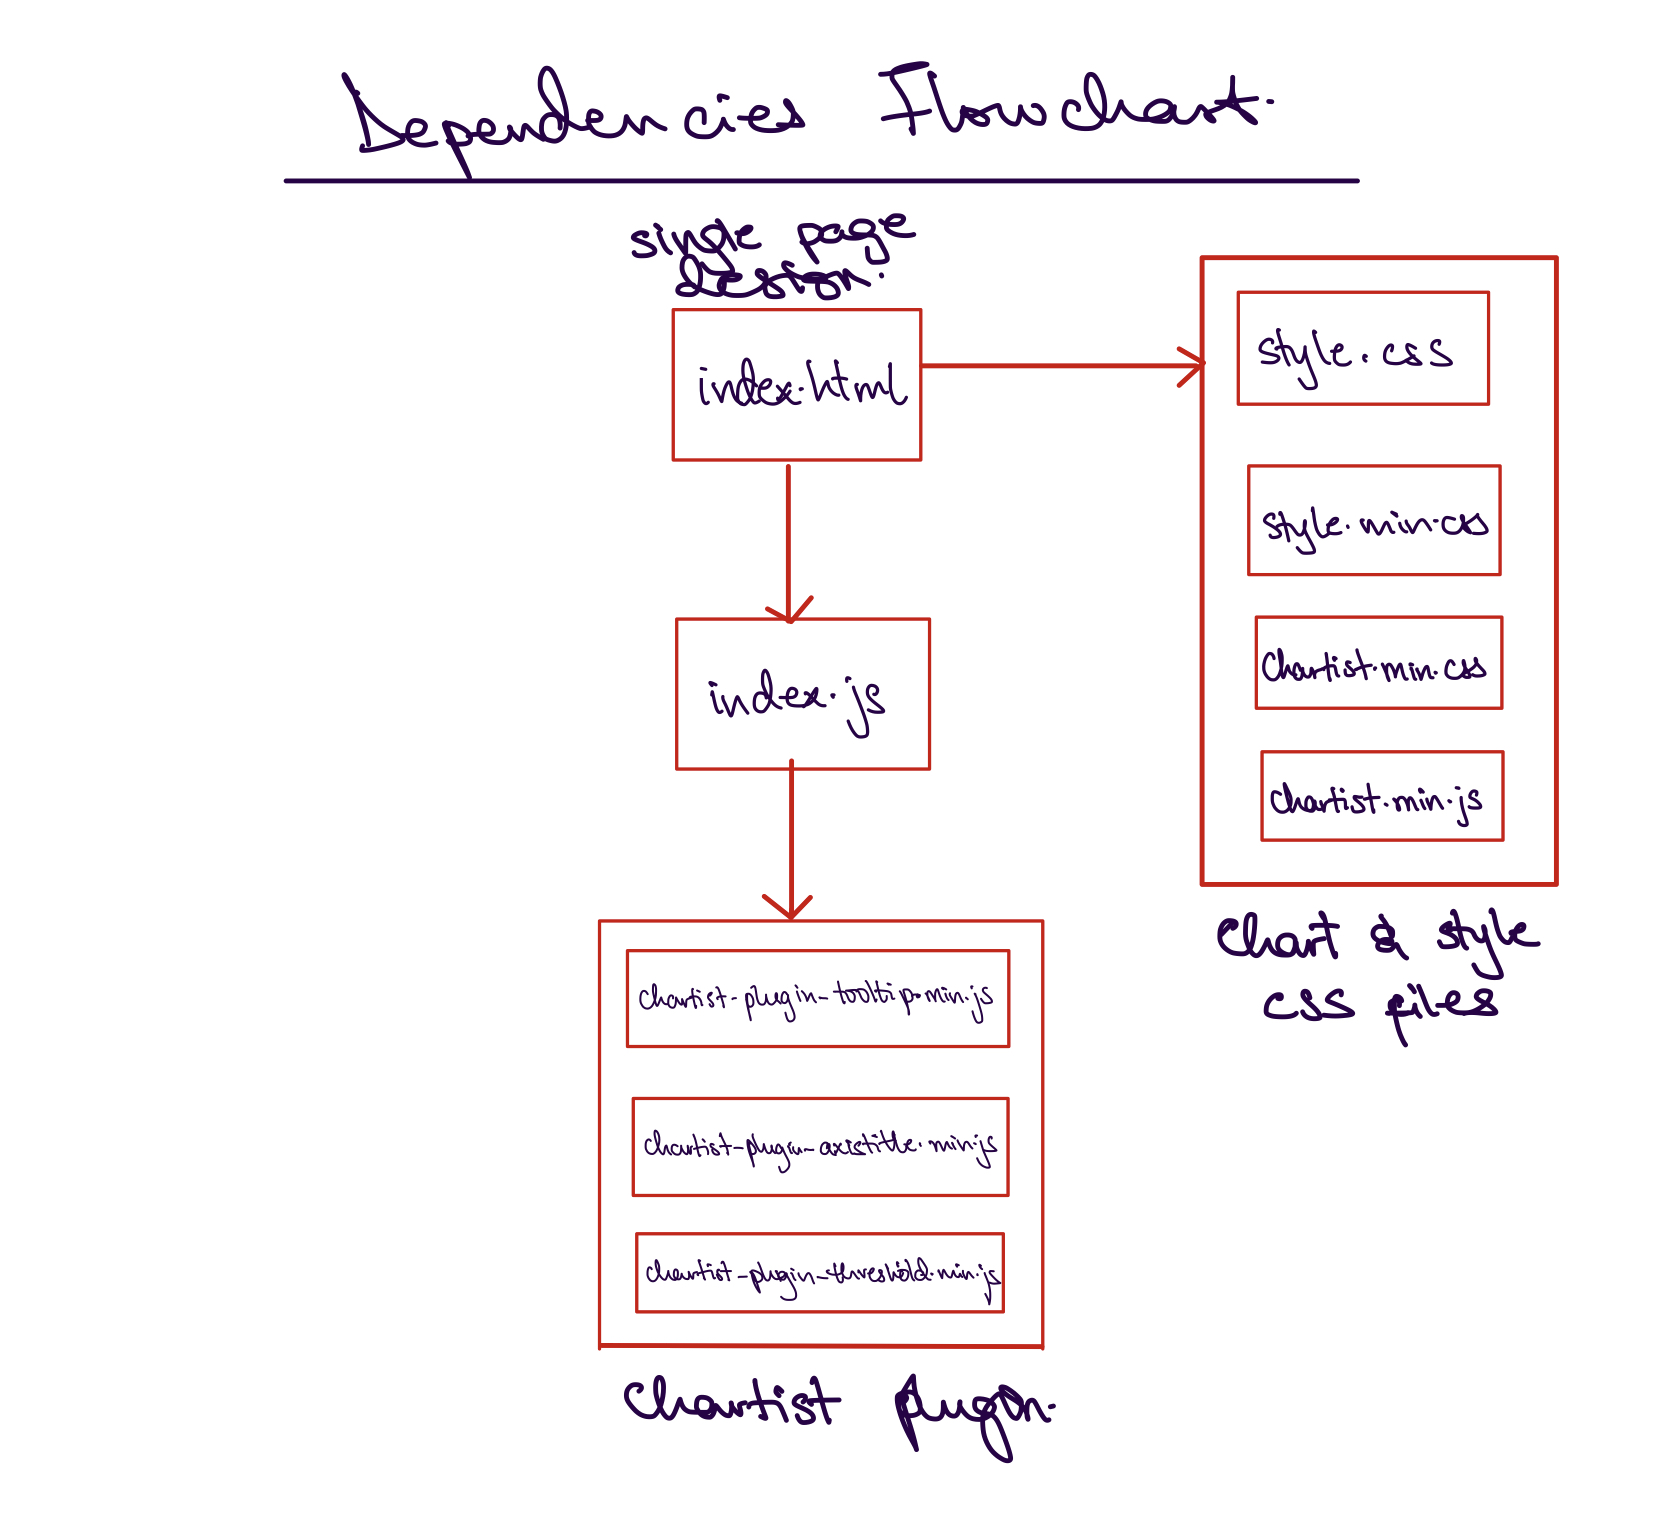 Dependencies Flowchart.
single page
design.
index.html
index.js
chartist-plugin-tooltip.min.js
chartist-plugin-axistitle.min.js
chartist-plugin-threshold.min.js
Chartist plugin.
style.css
style.min.css
Chartist.min.css
chartist.min.js
Chart & style
css files